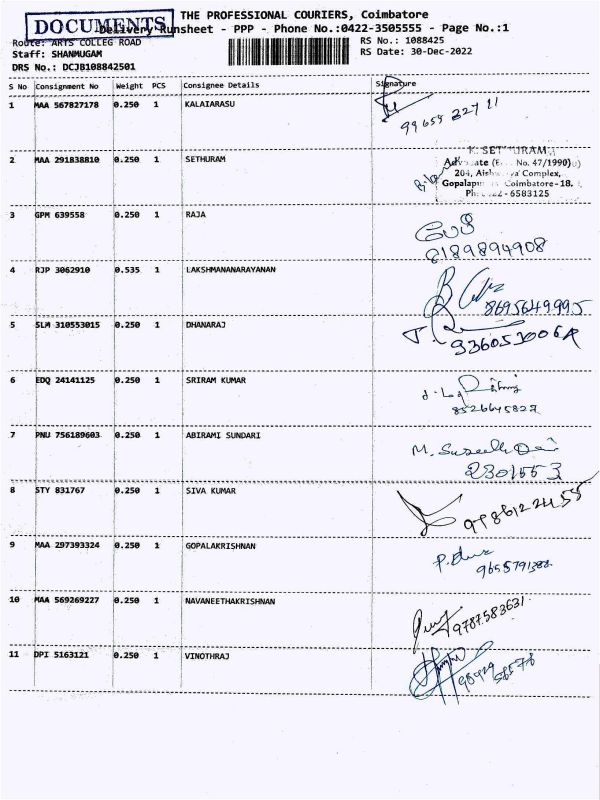 DOCUMENTS
THE PROFESSIONAL COURIERS, Coimbatore
Delivery Runsheet - PPP - Phone No.:0422-3505555 - Page No.:1
Route: ARTS COLLEG ROAD
RS No.: 1088425
Staff: SHANMUGAM
RS Date: 30-Dec-2022
DRS No.: DCJB108842501
S No Consignment No Weight PCS Consignee Details Signature
1 MAA 567827178 0.250 1 KALAIARASU
99655 32711
2 MAA 291838810 0.250 1 SETHURAM
No. 47/1990)
204, Complex,
Coimbatore-18.
6583125
3 GPM 639558 0.250 1 RAJA
8189894908
4 RJP 3062910 0.535 1 LAKSHMANANARAYANAN
8695649995
5 SLM 310553015 0.250 1 DHANARAJ
6 EDQ 24141125 0.250 1 SRIRAM KUMAR
8526645827
7 PNU 756189603 0.250 1 ABIRAMI SUNDARI
2301553
8 STY 831767 0.250 1 SIVA KUMAR
9 MAA 297393324 0.250 1 GOPALAKRISHNAN
10 MAA 569269227 0.250 1 NAVANEETHAKRISHNAN
9787583631
11 DPI 5163121 0.250 1 VINOTHRAJ